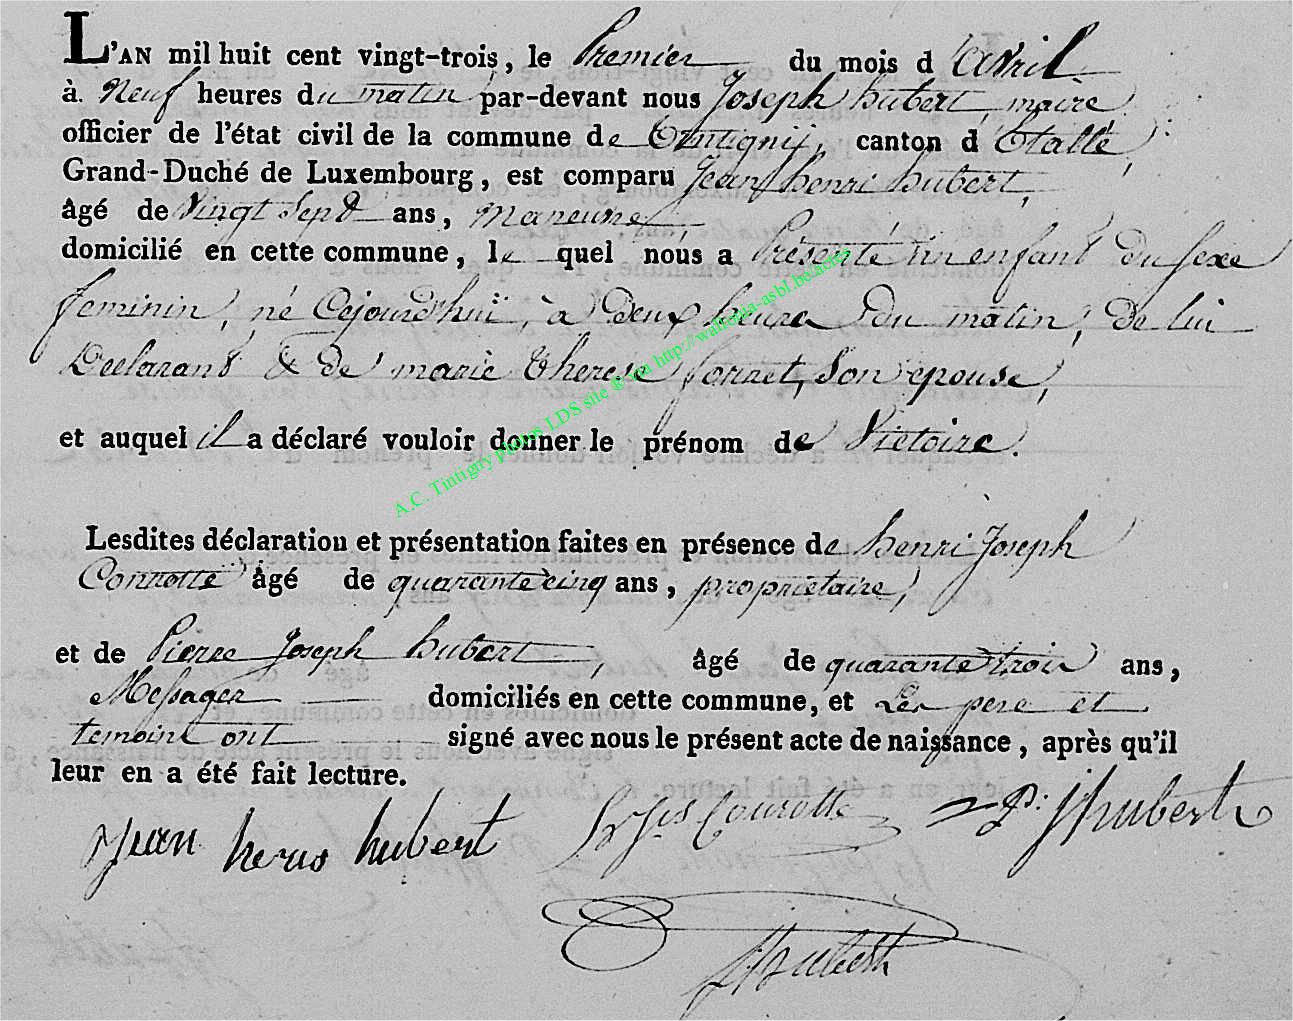 L'AN mil huit cent vingt-trois, le Premier du mois d'avril
à Neuf heures du matin par-devant nous Joseph hubert, maire
officier de l'état civil de la commune de Tintignij, canton d'Etalle,
Grand-Duché de Luxembourg, est comparu Jean henri hubert,
âgé de Vingt Sept ans, maneuvre,
domicilié en cette commune, le quel nous a Présenté un enfant du sexe
feminin, né Cejourd'huï, à deux heures du matin, de lui
Declarant & de marie therese forret, Son epouse,
et auquel il a déclaré vouloir donner le prénom de Victoire.
A.C. Tintigny photos LDS site & via http://wallonia-asbl.be/actes
Lesdites déclaration et présentation faites en présence de henri Joseph
Conrotte âgé de quarante cinq ans, propriétaire,
et de Pierre Joseph hubert, âgé de quarante trois ans,
Messager domiciliés en cette commune, et Les pere et
temoins ont signé avec nous le présent acte de naissance, après qu'il
leur en a été fait lecture.
Jean henris hubert Conrotte P: J hubert
J hubert